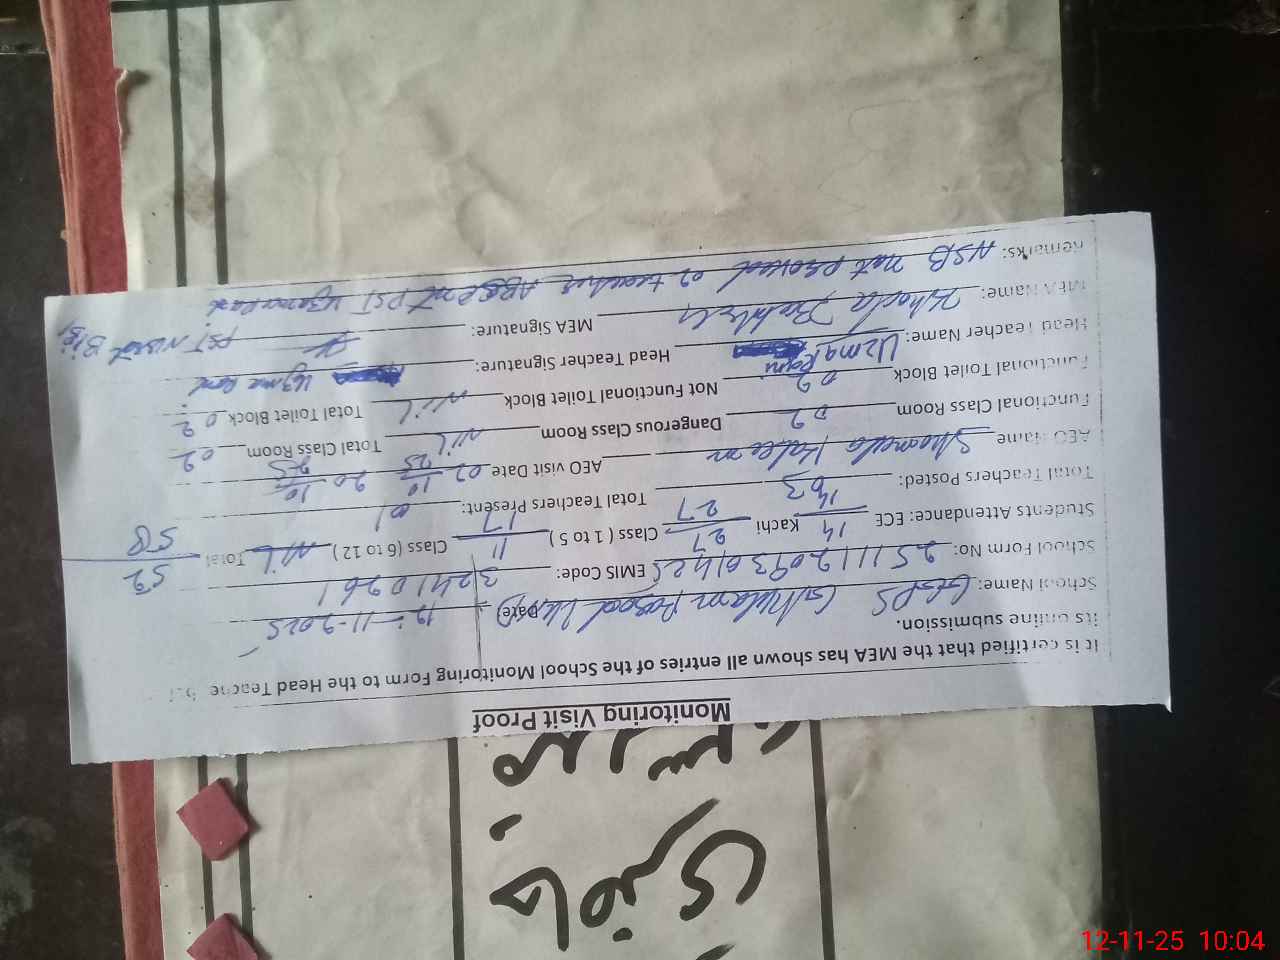 Monitoring Visit Proof
It is certified that the MEA has shown all entries of the School Monitoring Form to the Head Teache
its online submission.
School Name: GGPS Ghulam Rasool Date: 12-11-2025
School Form No: EMIS Code: 32410261
Students Attendance: ECE 14/14 Kachi 27/27 Class ( 1 to 5 ) 11/17 Class ( 6 to 12 ) NIL Total 52/58
Total Teachers Posted: 03 Total Teachers Present: 01
AEO Name Shameela Kaleem AEO visit Date 02 10 25 20 10 25
Functional Class Room 02 Dangerous Class Room NIL Total Class Room 02
Functional Toilet Block 02 Not Functional Toilet Block NIL Total Toilet Block 02
Head Teacher Name: Uzma Rani Head Teacher Signature: Uzma Rani
MEA Name: MEA Signature:
Remarks: NSB not proved 02 teacher Absent PST PST
حاضری
مدرسین
12-11-25 10:04